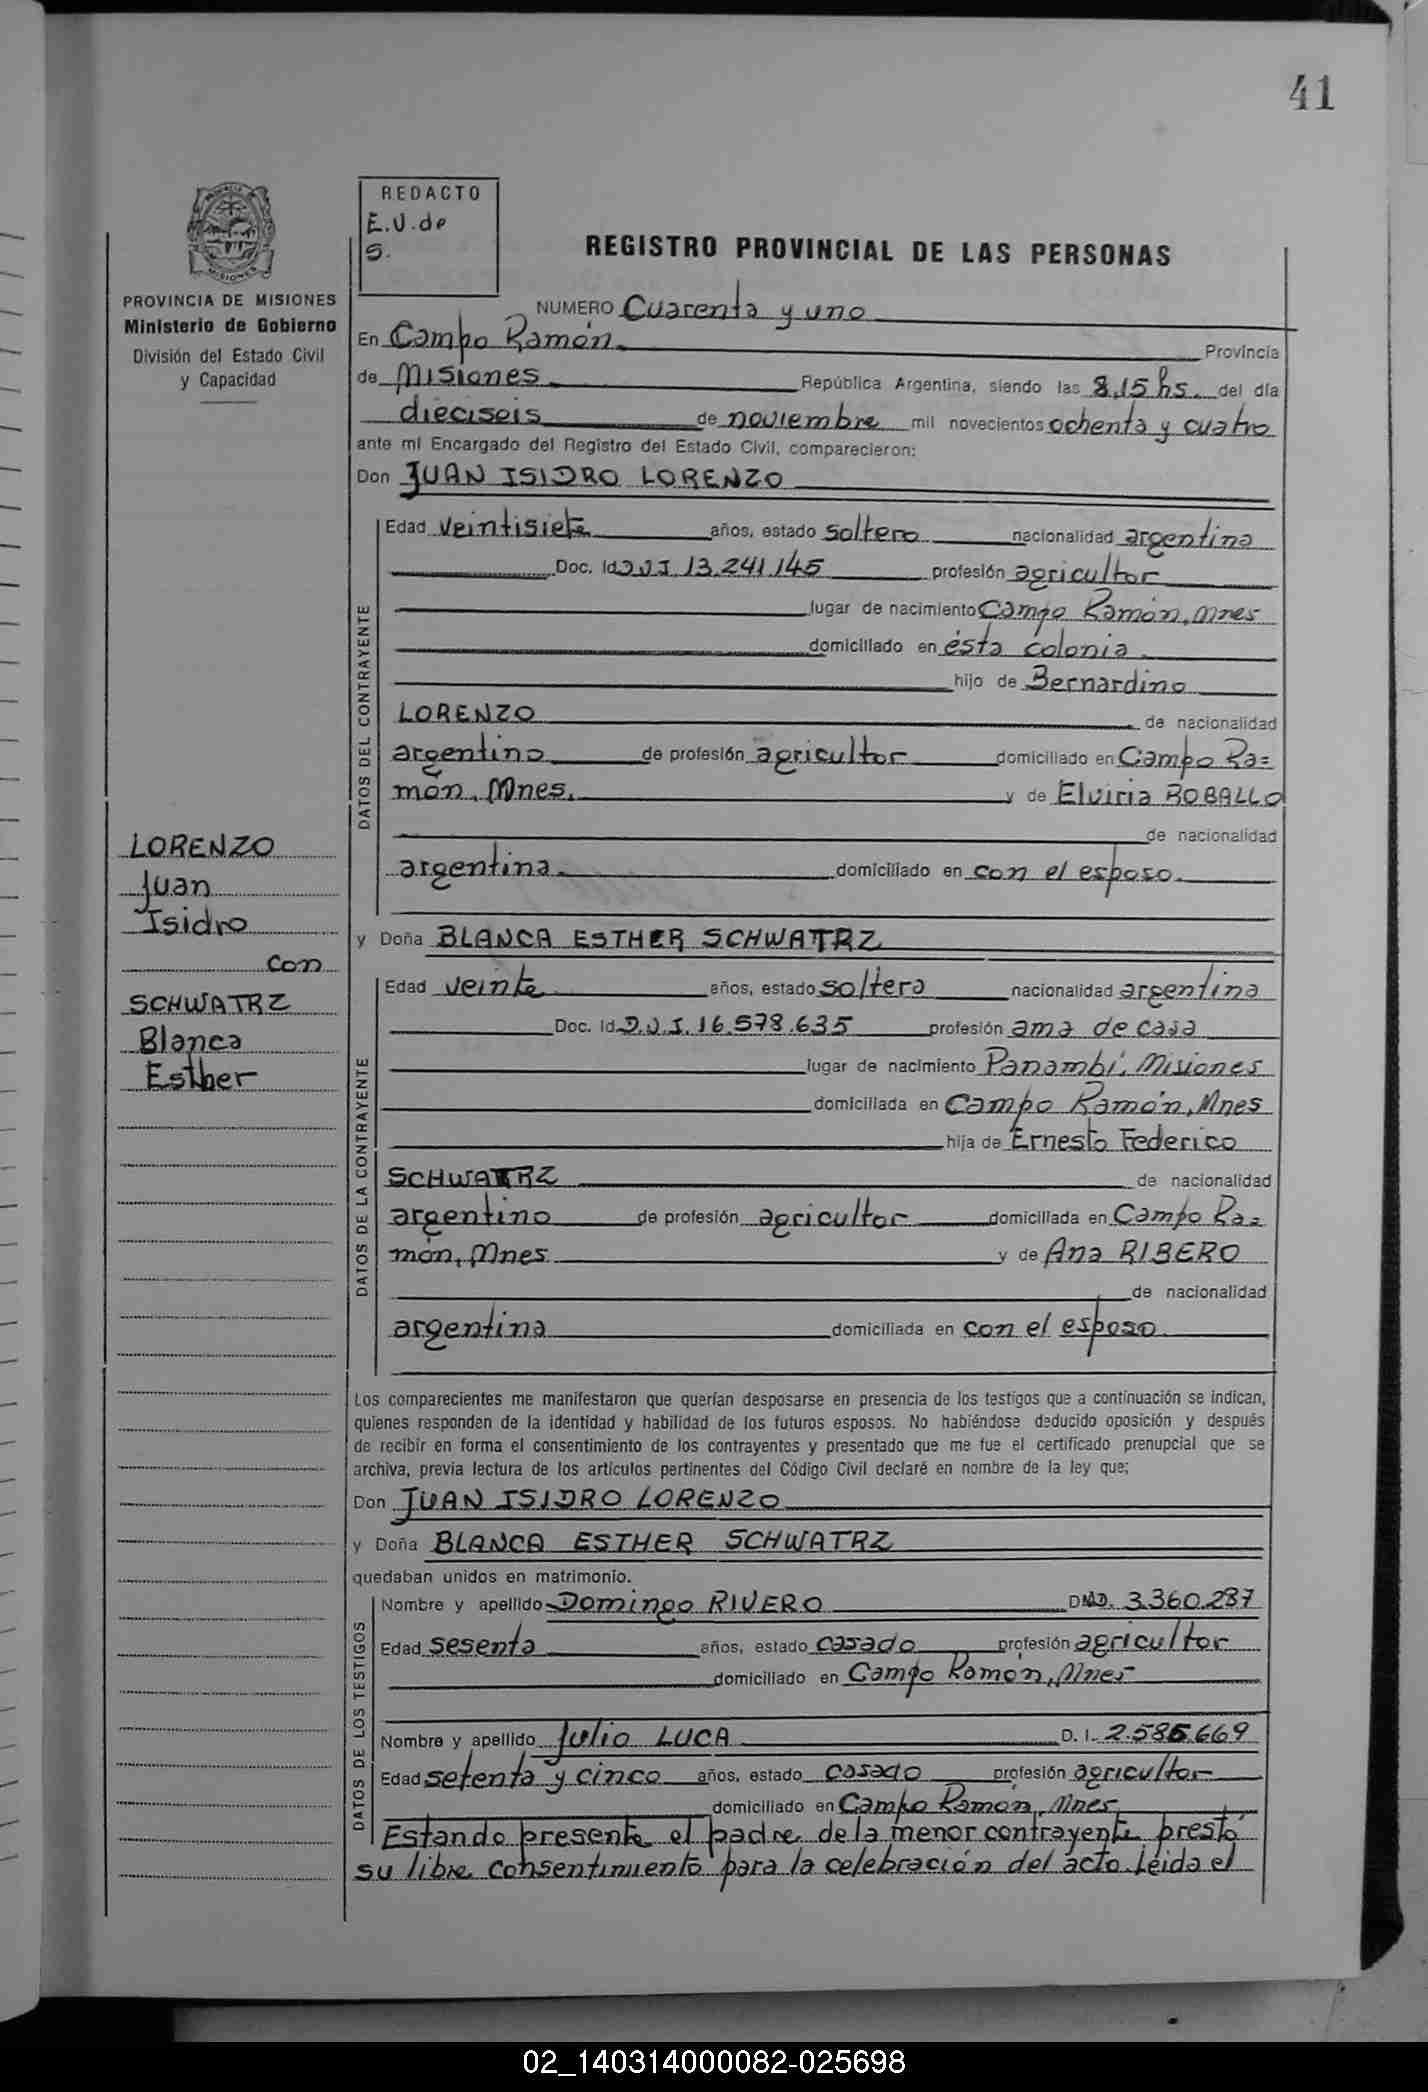 41
REDACTO
E.U. de
S.
REGISTRO PROVINCIAL DE LAS PERSONAS
PROVINCIA DE MISIONES
Ministerio de Gobierno
División del Estado Civil
y Capacidad
NUMERO Cuarenta y uno
En Campo Ramón. Provincia
de Misiones República Argentina, siendo las 8,15 hs. del día
dieciseis de noviembre mil novecientos ochenta y cuatro
ante mi Encargado del Registro del Estado Civil, comparecieron:
Don JUAN ISIDRO LORENZO
DATOS DEL CONTRAYENTE
Edad veintisiete años, estado soltero nacionalidad argentina
Doc. Id D.N.I 13.241.145 profesión agricultor
lugar de nacimiento Campo Ramón, Mnes
domiciliado en ésta colonia
hijo de Bernardino
LORENZO de nacionalidad
argentino de profesión agricultor domiciliado en Campo Ra=
món, Mnes. y de Elviria BOBALLO
de nacionalidad
argentina. domiciliado en con el esposo.
LORENZO
Juan
Isidro
con
SCHWATRZ
Blanca
Esther
y Doña BLANCA ESTHER SCHWATRZ
DATOS DE LA CONTRAYENTE
Edad veinte años, estado soltera nacionalidad argentina
Doc. Id D.N.I. 16.578.635 profesión ama de casa
lugar de nacimiento Panambí, Misiones
domiciliada en Campo Ramón, Mnes
hija de Ernesto Federico
SCHWATRZ de nacionalidad
argentino de profesión agricultor domiciliada en Campo Ra=
món, Mnes y de Ana RIBERO
de nacionalidad
argentina domiciliada en con el esposo.
Los comparecientes me manifestaron que querían desposarse en presencia de los testigos que a continuación se indican,
quienes responden de la identidad y habilidad de los futuros esposos. No habiéndose deducido oposición y después
de recibir en forma el consentimiento de los contrayentes y presentado que me fue el certificado prenupcial que se
archiva, previa lectura de los artículos pertinentes del Código Civil declaré en nombre de la ley que;
Don JUAN ISIDRO LORENZO
y Doña BLANCA ESTHER SCHWATRZ
quedaban unidos en matrimonio.
DATOS DE LOS TESTIGOS
Nombre y apellido Domingo RIVERO 3.360.287
Edad sesenta años, estado casado profesión agricultor
domiciliado en Campo Ramón, Mnes
Nombre y apellido Julio LUCA D. I. 2.585.669
Edad setenta y cinco años, estado casado profesión agricultor
domiciliado en Campo Ramón, Mnes
Estando presente el padre de la menor contrayente prestó
su libre consentimiento para la celebración del acto. Leida el
02_140314000082-025698